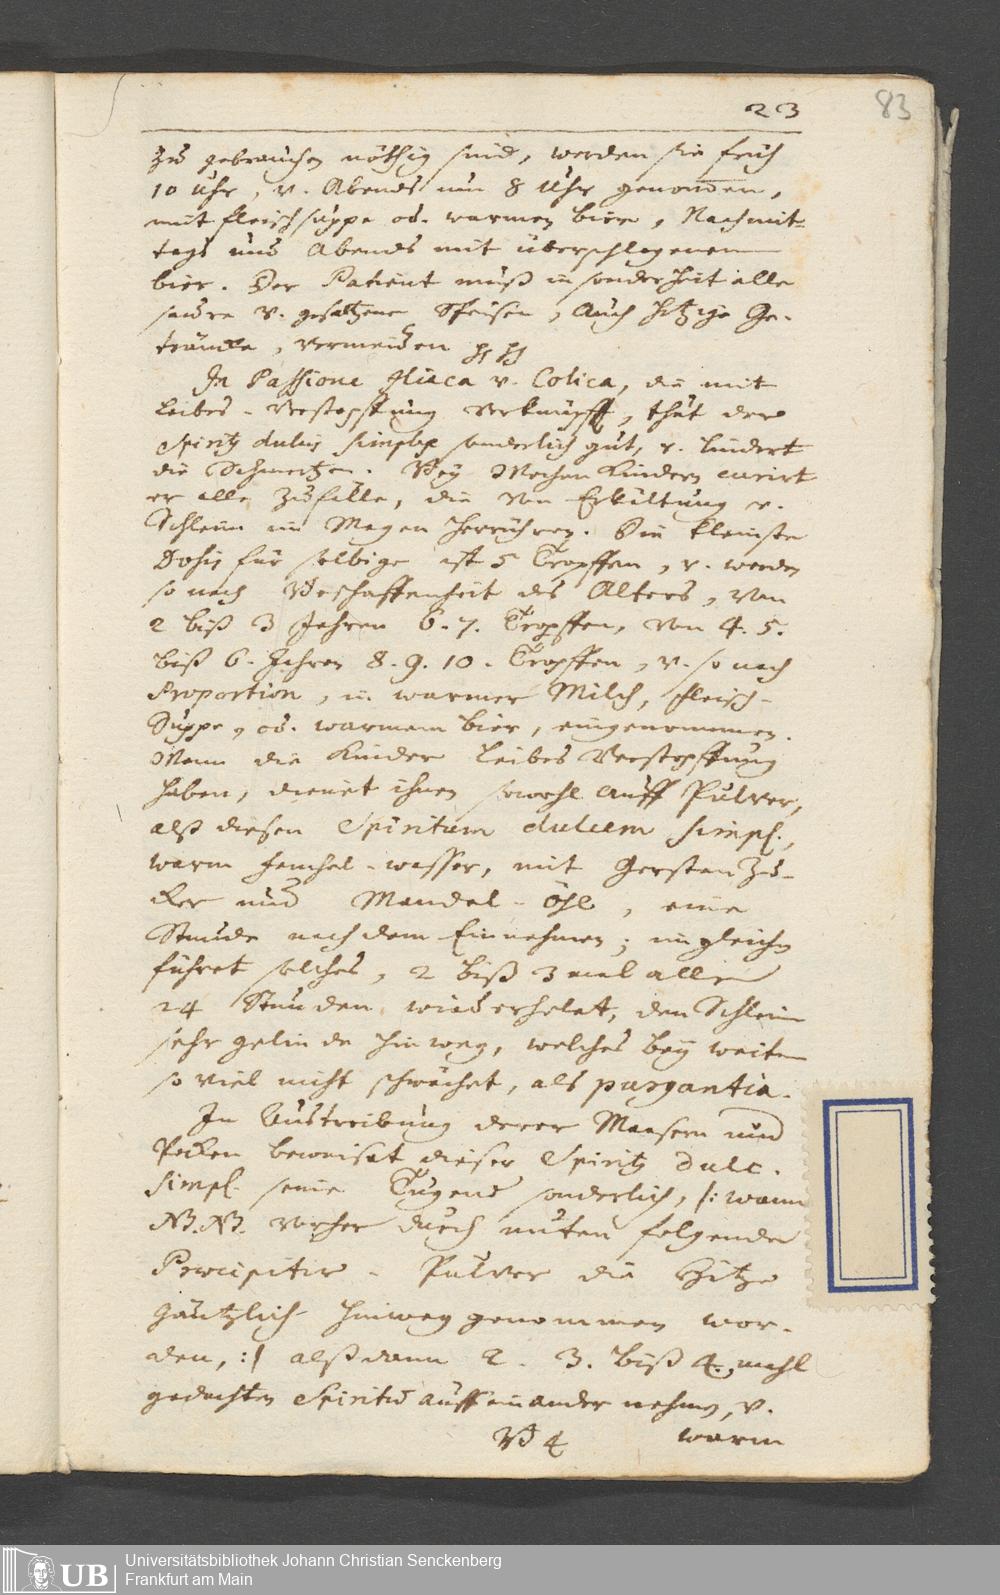 23
83
zu gebrauchen nöthig sind, werden sie früh
10 Uhr, v. Abends um 8 Uhr genomen,
mit fleischsuppe od. warmen bier, Nachmit=
tags und Abends mit überschlagenem
bier. Der Patient muß in sonderheit alle
saure v. gesaltzene Speisen, Auch hitzige Ge-
träncke, vermeiden
In Passione Iliaca v. Colica, die mit
leibes-Verstopffung verknüpfft, thut der
Spiritg dulcis simplex sonderlich gut, v. lindert
die Schmertzen. Bey Wochen Kindern curirt
er alle Zufälle, die von Erkältung v.
Schleim im Magen herrühren. Die kleinste
Dosis für selbige ist 5 Tropffen, v. werden
so nach Beschaffenheit des Alters, von
2 biß 3 Jahren 6. 7. Tropffen, von 4. 5.
biß 6. Jahren 8. 9. 10. Tropffen, v. so nach
Proportion, in warmer Milch, fleisch-
Suppe, od. warmem bier, eingenommen.
Wenn die Kinder leibes Verstopffung
haben, dienet ihnen sowohl auff Pulver,
alß diesen Spiritum dulcem simpl.,
warm fenchel-wasser, mit Gersten Zu-
cker und Mandel-Öhl, eine
Stunde nach dem Einnehmen; im gleichen
führet solches, 2 biß 3 mal alle
24 Stunden wiederholet, den Schleim
sehr gelinde hinweg, welches bey weiten
so viel nicht schwächet, als purgantia.
In Austreibung derer Maasern und
Pocken beweiset dieser Spiritg dulc.
simpl. seine Tugend sonderlich, /: wann
NB. NB. vorher durch unten folgende
Præcipitir- Pulver die Hitze
gäntzlich hinweg genommen wor-
den, :/ alß dann 2. 3. biß 4. mahl
gedachten Spiritū auff einander nehmen, v.
B 4 warm
UB Universitätsbibliothek Johann Christian Senckenberg
Frankfurt am Main